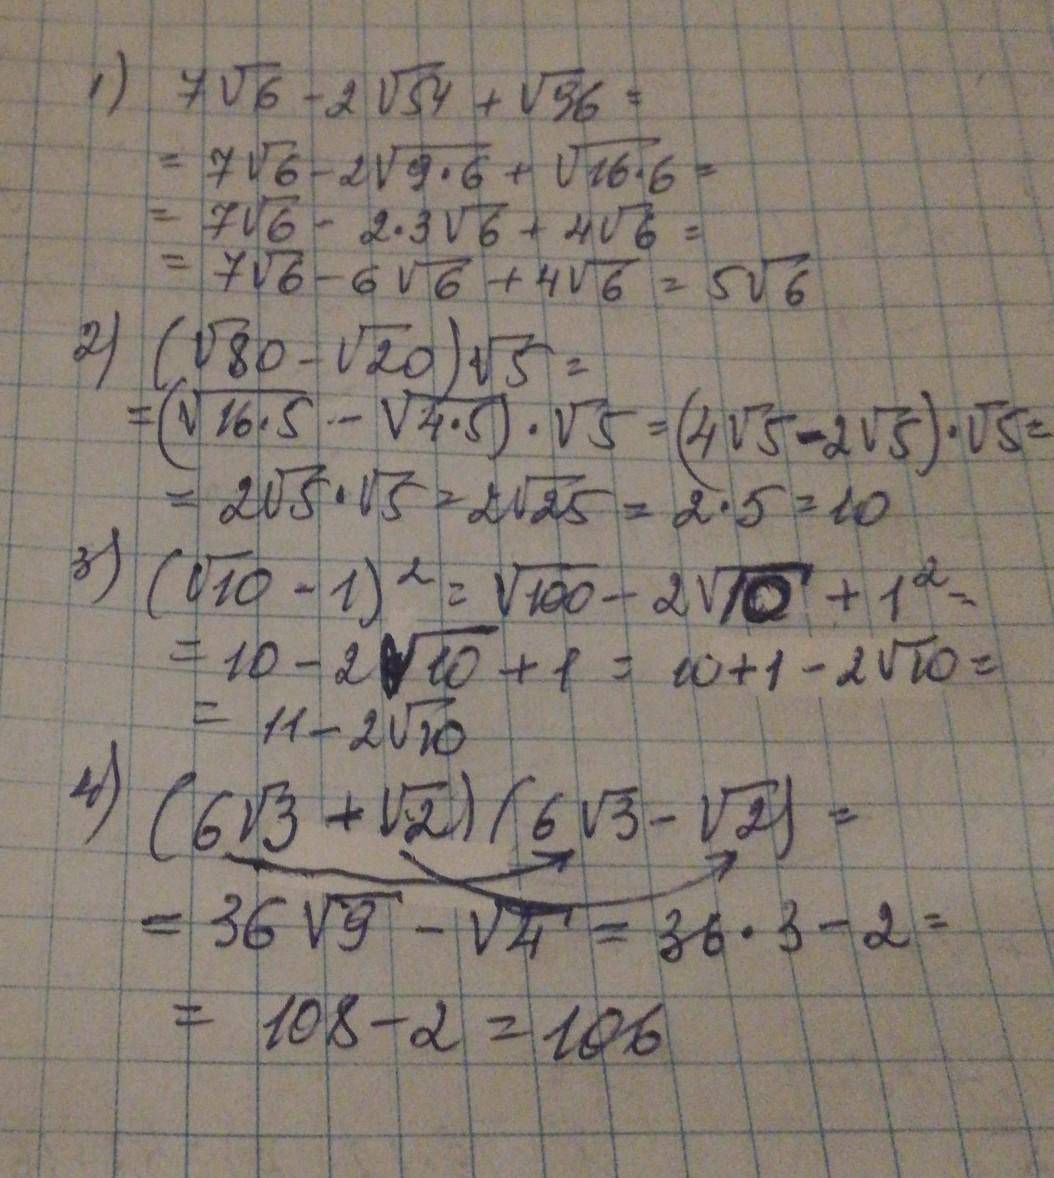 1) 7√6 - 2√54 + √96 =
= 7√6 - 2√9·6 + √16·6 =
= 7√6 - 2·3√6 + 4√6 =
= 7√6 - 6√6 + 4√6 = 5√6
2) (√80 - √20)√5 =
= (√16·5 - √4·5)·√5 = (4√5 - 2√5)·√5 =
= 2√5·√5 = 2√25 = 2·5 = 10
3) (√10 - 1)² = √100 - 2√10 + 1² =
= 10 - 2√10 + 1 = 10 + 1 - 2√10 =
= 11 - 2√10
4) (6√3 + √2)(6√3 - √2) =
= 36√9 - √4 = 36·3 - 2 =
= 108 - 2 = 106